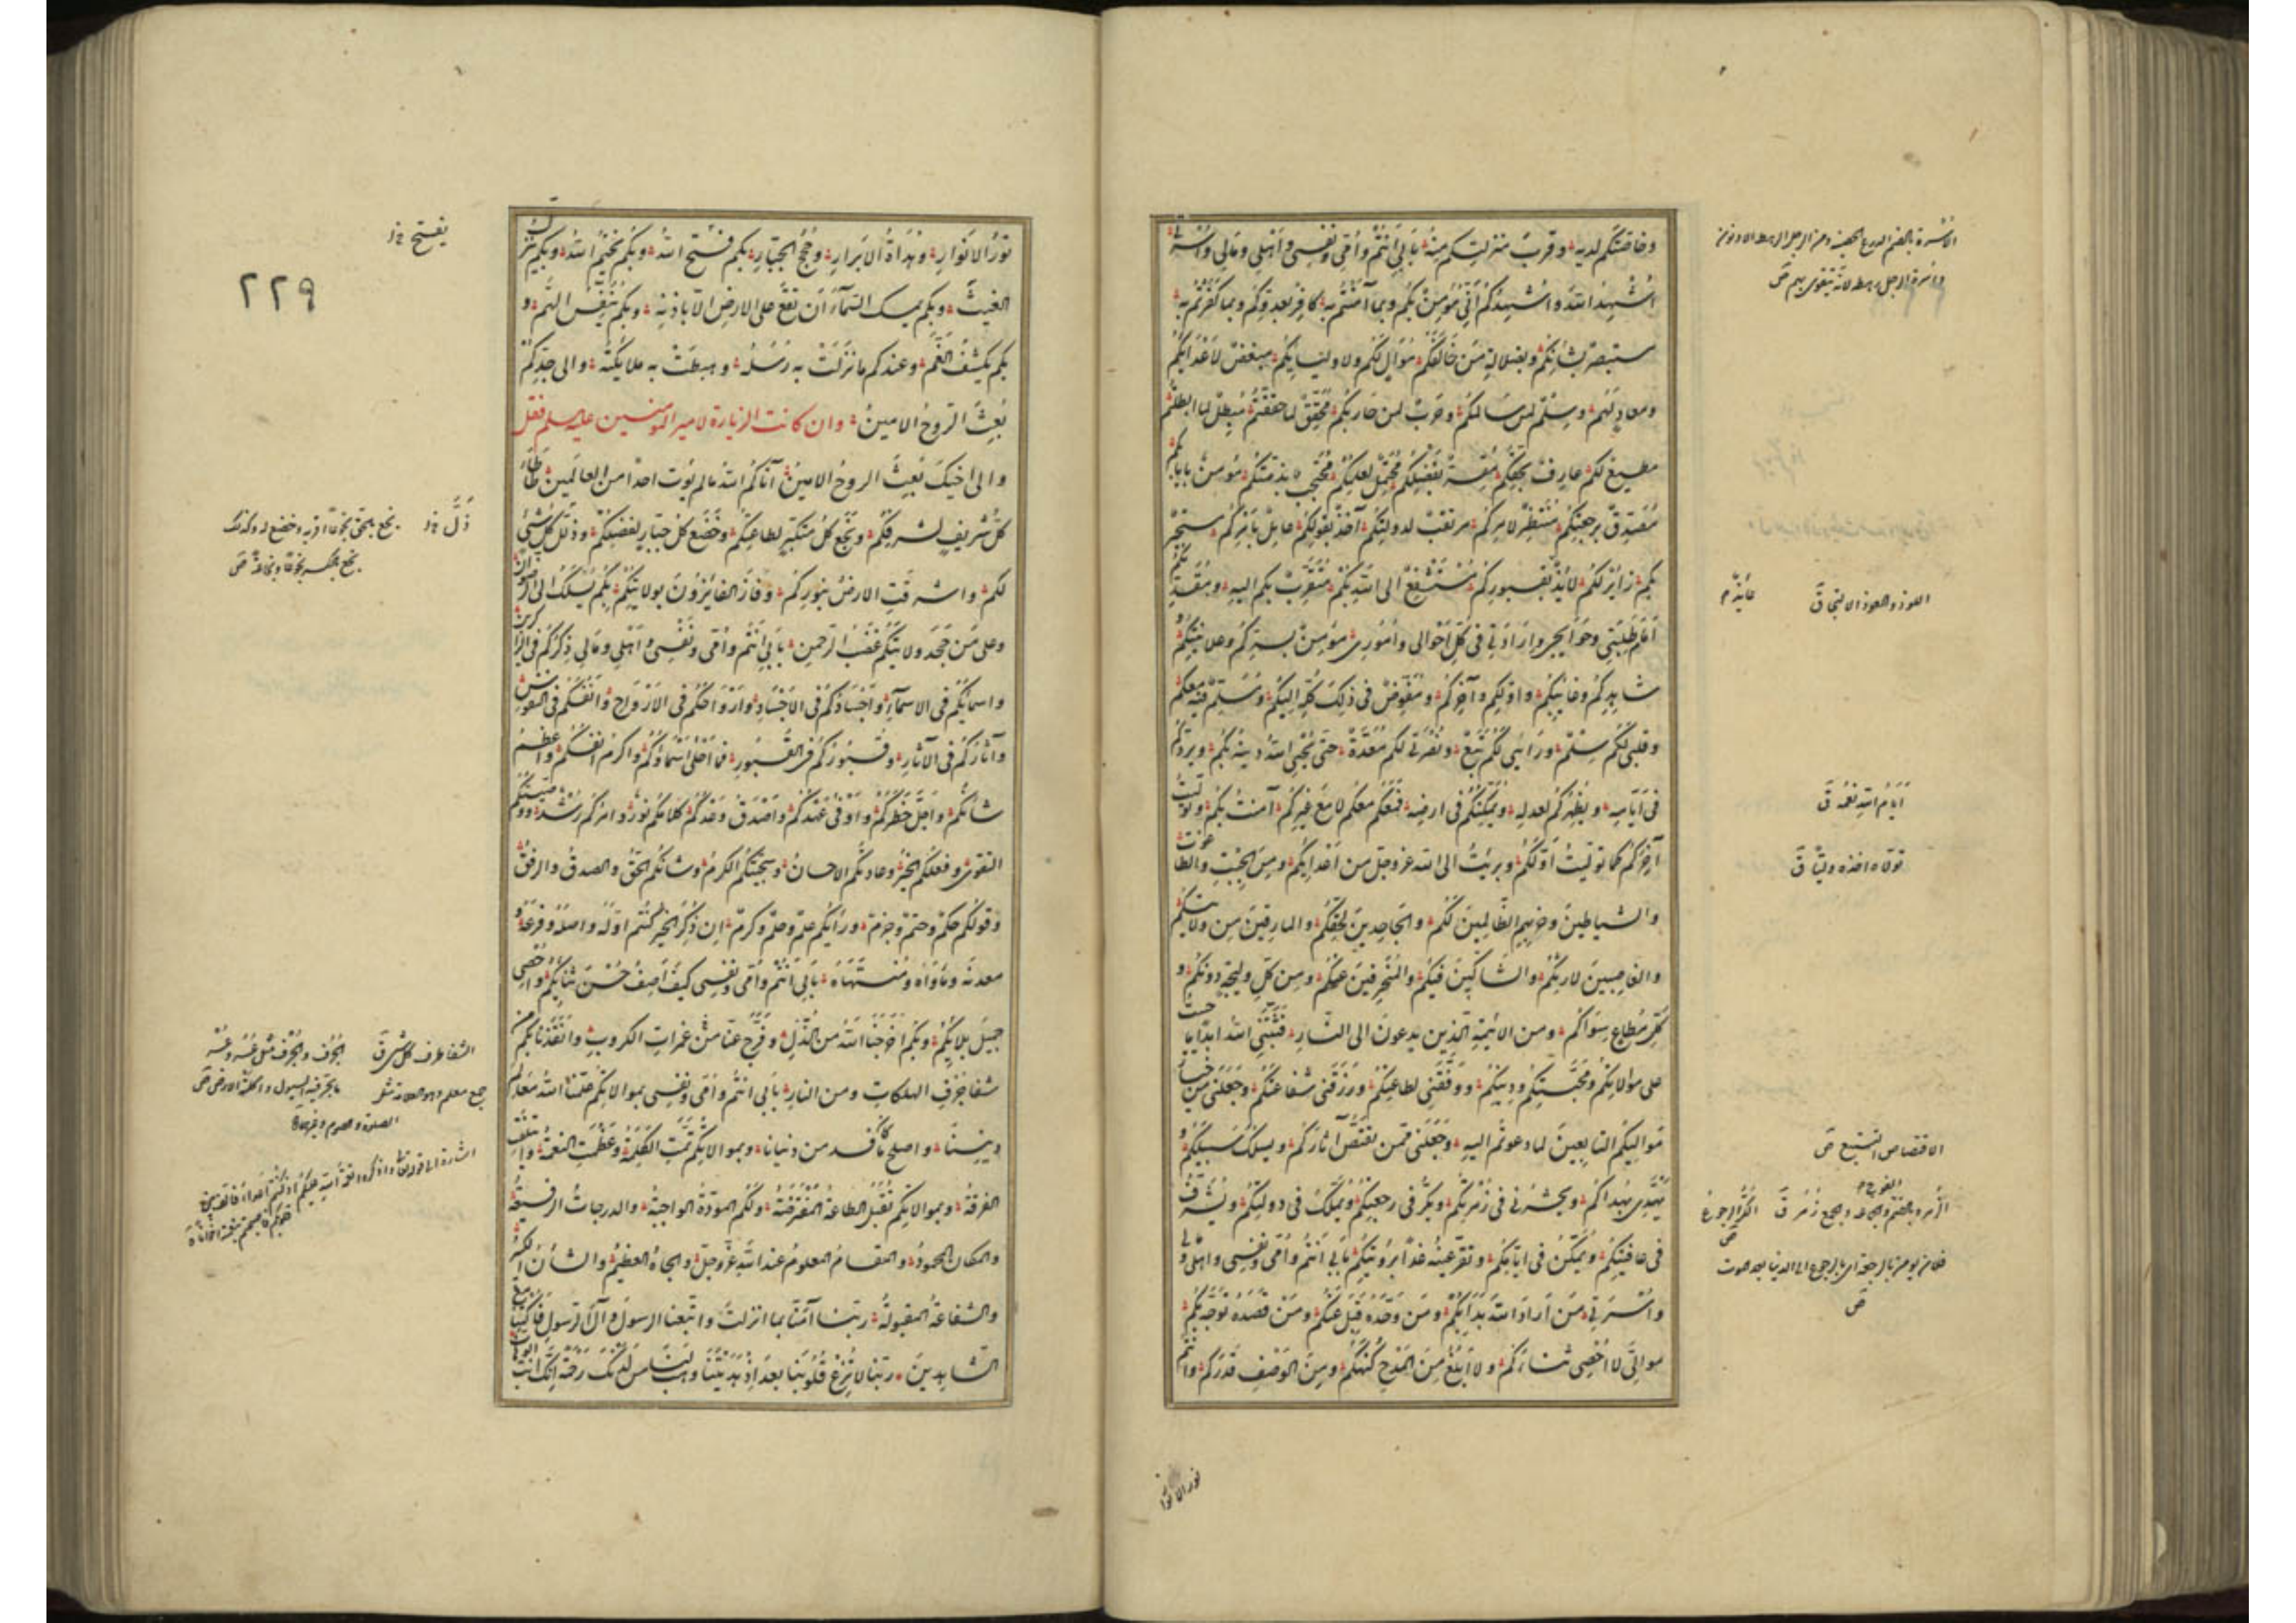 وخاصتكم لديه وقرب منزلتكم منه بابي انتم وامي ونفسي واهلي ومالي واسرتي
اشهد الله واشهدكم اني مؤمن بكم وبما آمنتم به كافر بعدوكم وبما كفرتم به
مستبصر بشانكم وبضلالة من خالفكم موال لكم ولاوليائكم مبغض لاعدائكم
ومعاد لهم وسلم لمن سالمكم وحرب لمن حاربكم محقق لما حققتم مبطل لما ابطلتم
مطيع لكم عارف بحقكم مقر بفضلكم محتمل لعلمكم محتجب بذمتكم مؤمن بايابكم
مصدق برجعتكم منتظر لامركم مرتقب لدولتكم آخذ بقولكم عامل بامركم مستجير
بكم زائر لكم لائذ بقبوركم مستشفع الى الله بكم متقرب بكم اليه ومقدمكم
امام طلبتي وحوائجي وارادتي في كل احوالي واموري مؤمن بسركم وعلانيتكم و
شاهدكم وغائبكم واولكم وآخركم ومفوض في ذلك كله اليكم ومسلم فيه معكم
وقلبي لكم سلم ورائي لكم تبع ونصرتي لكم معدة حتى يحيي الله دينه بكم ويردكم
في ايامه ويظهركم لعدله ويمكنكم في ارضه فمعكم معكم لا مع غيركم آمنت بكم وتوليت
آخركم كما توليت اولكم وبرئت الى الله عز وجل من اعدائكم ومن الجبت والطاغوت
والشياطين وحزبهم الظالمين لكم والجاحدين لحقكم والمارقين من ولايتكم
والغاصبين لارثكم والشاكين فيكم والمنحرفين عنكم ومن كل وليجة دونكم و
كل مطاع سواكم ومن الائمة الذين يدعون الى النار فثبتني الله ابدا ما حييت
على موالاتكم ومحبتكم ودينكم ووفقني لطاعتكم ورزقني شفاعتكم وجعلني من خيار
مواليكم التابعين لما دعوتم اليه وجعلني ممن يقتص آثاركم ويسلك سبيلكم و
يهتدي بهداكم ويحشر في زمرتكم ويكر في رجعتكم ويملك في دولتكم ويشرف
في عافيتكم ويمكن في ايامكم وتقر عينه غدا برؤيتكم بابي انتم وامي ونفسي واهلي ومالي
واسرتي من اراد الله بدا بكم ومن وحده قبل عنكم ومن قصده توجه بكم
موالي لا احصي ثناءكم ولا ابلغ من المدح كنهكم ومن الوصف قدركم وانتم
نور الانوار
اللوذ والعوذ الالتجاء ق
عائذ م
ايام الله نعمه ق
تولاه اتخذه وليا ق
الاقتصاص التتبع ص
الكر الرجوع ص
نور الانوار وهداة الابرار وحجج الجبار بكم فتح الله وبكم يختم الله وبكم ينزل
الغيث وبكم يمسك السماء ان تقع على الارض الا باذنه وبكم ينفس الهم و
بكم يكشف الغم وعندكم ما نزلت به رسله وهبطت به ملائكته والى جدكم
بعث الروح الامين وان كانت الزيارة لامير المؤمنين عليه السلم فقل
والى اخيك بعث الروح الامين آتاكم الله ما لم يوت احدا من العالمين طاطا
كل شريف لشرفكم وبخع كل متكبر لطاعتكم وخضع كل جبار لفضلكم وذل كل شيء
لكم واشرقت الارض بنوركم وفاز الفائزون بولايتكم بكم يسلك الى الرضوان
وعلى من جحد ولايتكم غضب الرحمن بابي انتم وامي ونفسي واهلي ومالي ذكركم في الذاكرين
واسمائكم في الاسماء واجسادكم في الاجساد وارواحكم في الارواح وانفسكم في النفوس
وآثاركم في الآثار وقبوركم في القبور فما احلى اسماؤكم واكرم انفسكم واعظم
شانكم واجل خطركم واوفى عهدكم واصدق وعدكم كلامكم نور وامركم رشد ووصيتكم
التقوى وفعلكم الخير وعادتكم الاحسان وسجيتكم الكرم وشانكم الحق والصدق والرفق
وقولكم حكم وحتم وجزم ورايكم علم وحلم وكرم ان ذكر الخير كنتم اوله واصله وفرعه و
معدنه وماواه ومنتهاه بابي انتم وامي ونفسي كيف اصف حسن ثنائكم واحصي
جميل بلائكم وبكم اخرجنا الله من الذل وفرج عنا غمرات الكروب وانقذنا بكم من
شفا جرف الهلكات ومن النار بابي انتم وامي ونفسي بموالاتكم علمنا الله معالم
ديننا واصلح ما كان فسد من دنيانا وبموالاتكم تمت الكلمة وعظمت النعمة وائتلفت
الفرقة وبموالاتكم تقبل الطاعة المفترضة ولكم المودة الواجبة والدرجات الرفيعة
والمكان المحمود والمقام المعلوم عند الله عز وجل والجاه العظيم والشان الكبير
والشفاعة المقبولة ربنا آمنا بما انزلت واتبعنا الرسول وآل الرسول فاكتبنا مع
الشاهدين ربنا لا تزغ قلوبنا بعد اذ هديتنا وهب لنا من لدنك رحمة انك انت الوهاب
يفتح خ
٢٢٩
ذل خ